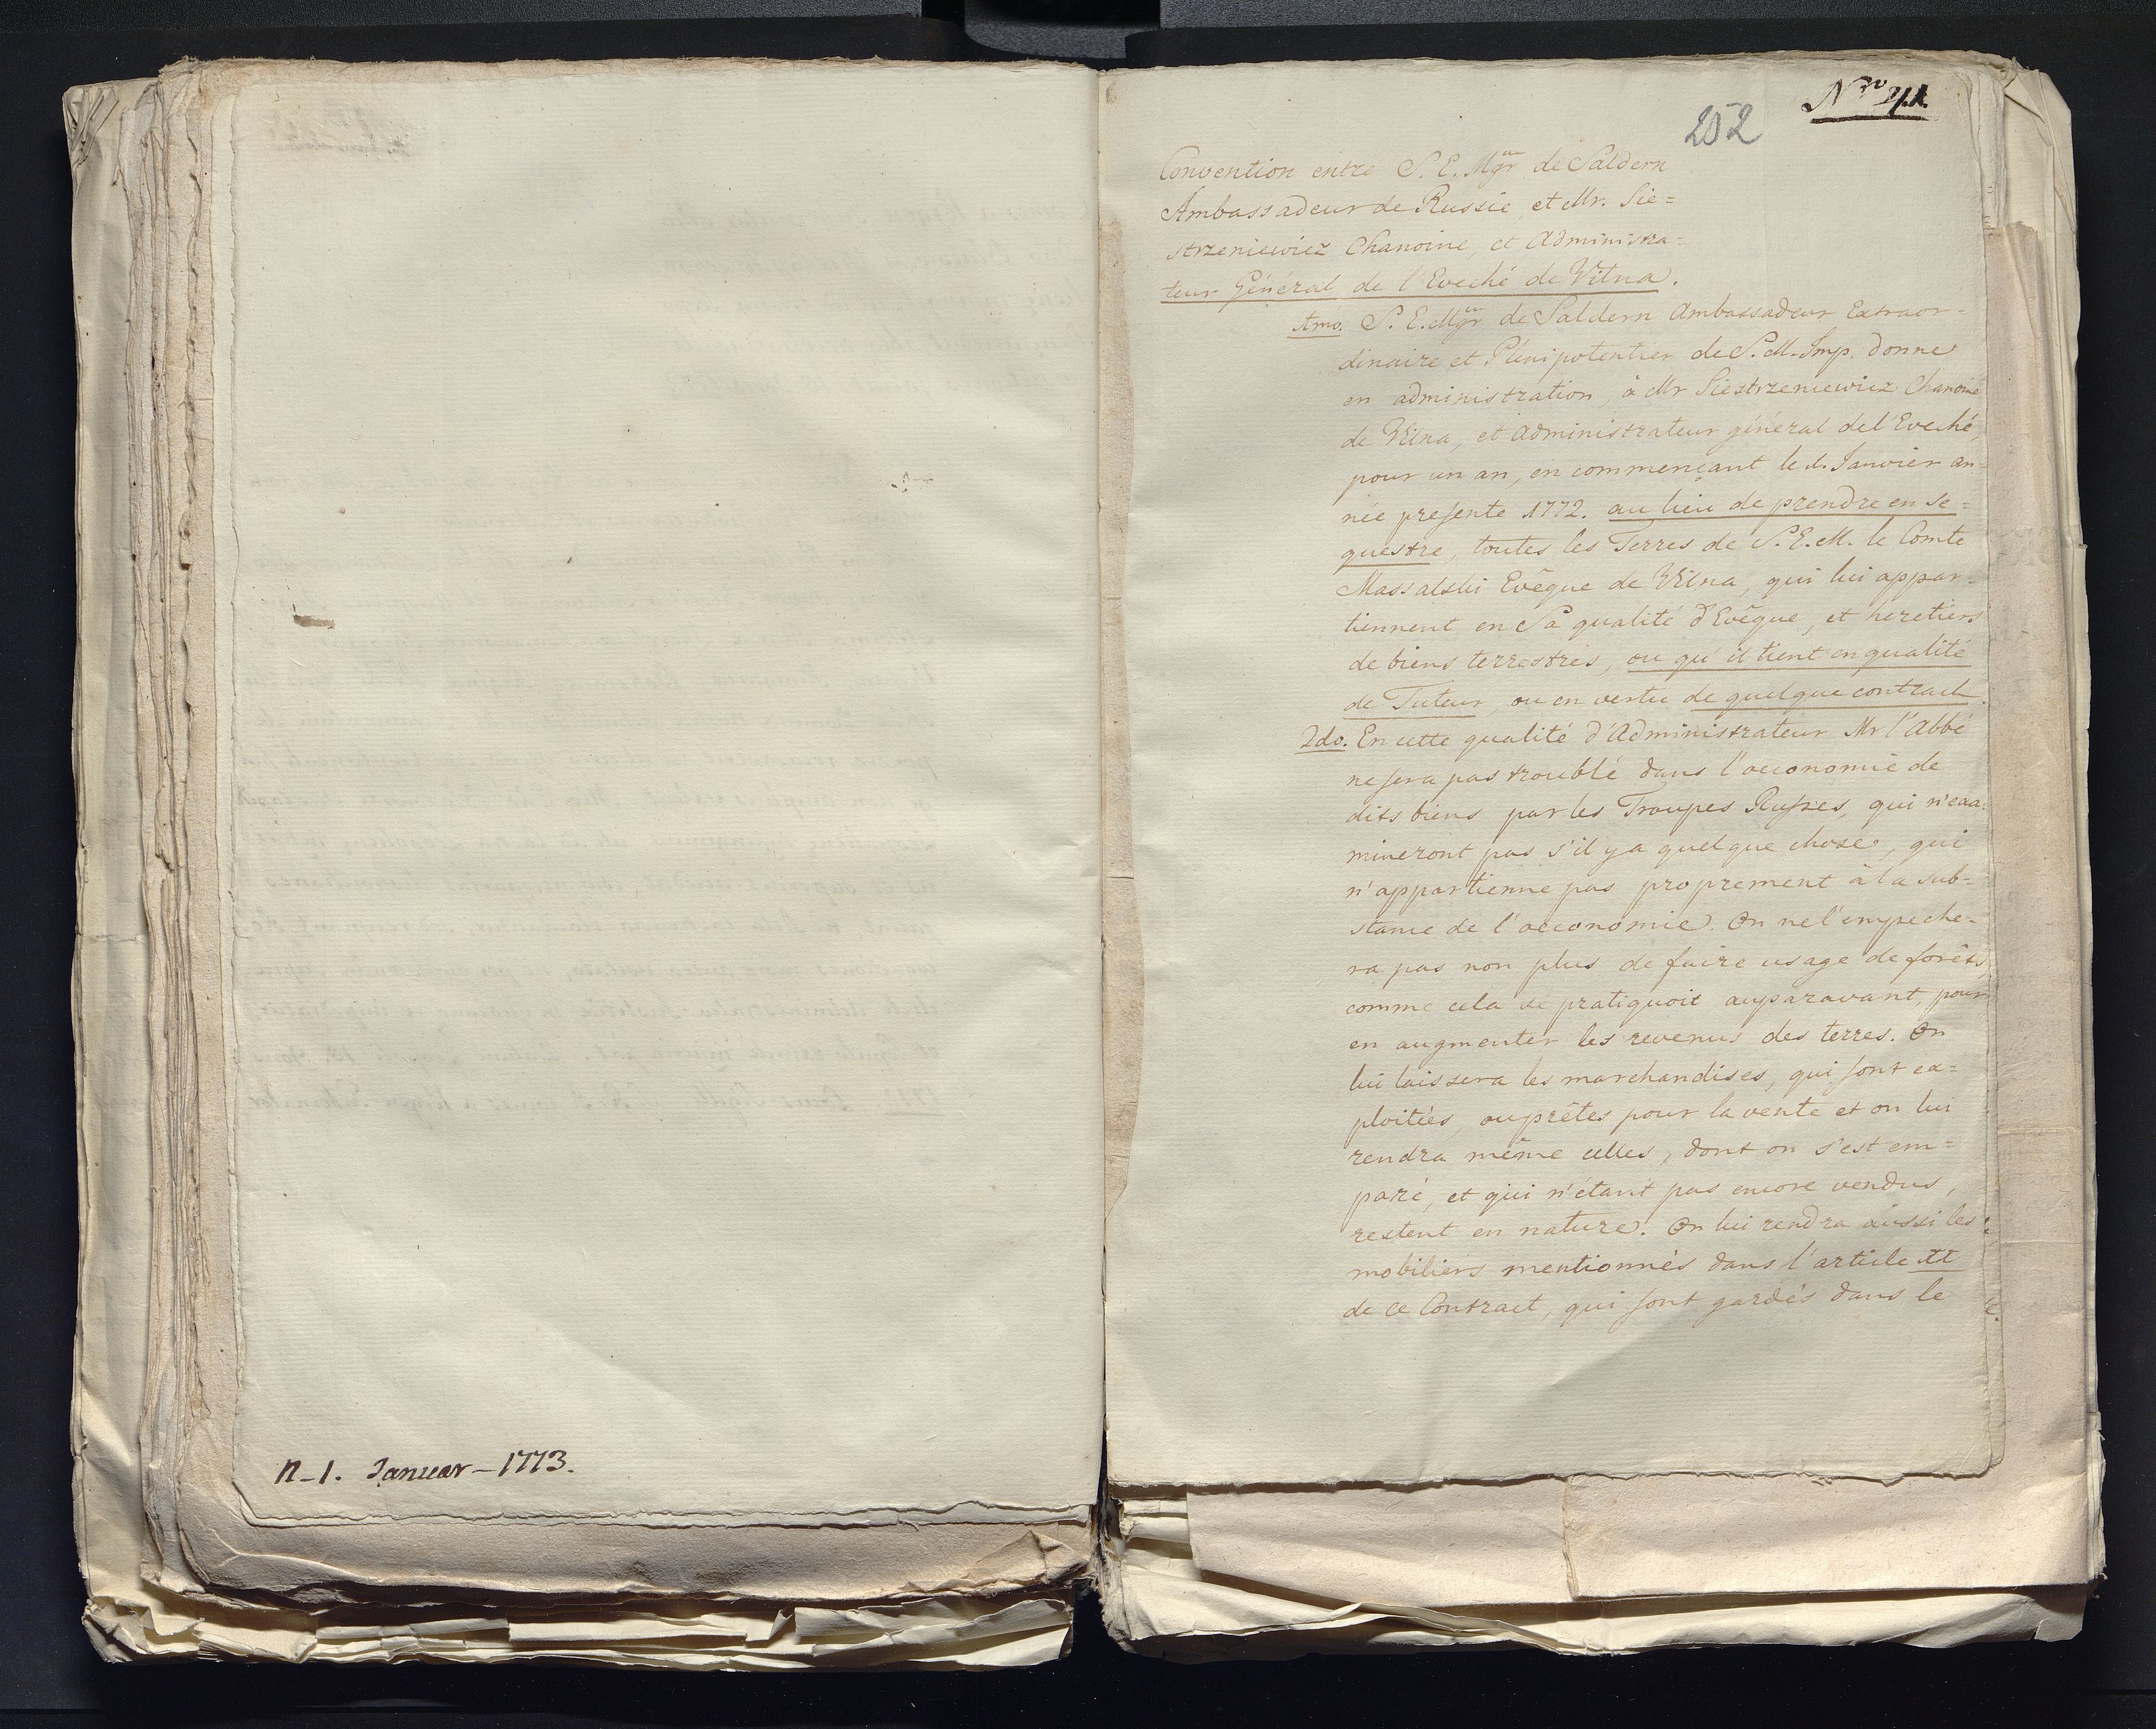 n-1. Januar-1773.
252
Convention entre S. E. Mgr de Saldern
Ambassadeur de Russie, et Mr. Sie=
strzeniewicz Chanoine, et Administra=
teur Général de l'Eveché de Vilna.
1mo. S. E. Mgr de Saldern Ambassadeur Extraor=
dinaire et Plenipotentier de S. M. Imp. donne
en administration, à Mr Siestrzeniewicz Chanoine
de Vilna, et Administrateur général de l'Eveché,
pour un an, en commençant le 1. Janvier an=
née presente 1772. au lieu de prendre en se=
questre, toutes les Terres de S. E. M. le Comte
Massalski Evêque de Vilna, qui lui appar=
tiennent en Sa qualité d'Evêque, et heretiers
de biens terrestres, ou qu'il tient en qualité
de Tuteur, ou en vertu de quelque contract.
2do. En cette qualité d'Administrateur Mr l'Abbé
ne sera pas troublé dans l'oeconomie de
dits biens par les Troupes Russes, qui n'exa=
mineront pas s'il y a quelque chose, qui
n'appartienne pas proprement à la sub=
stance de l'oeconomie. On ne l'empeche=
ra pas non plus de faire usage de forêts,
comme cela se pratiquoit auparavant, pour
en augmenter les revenus des terres. On
lui laissera les marchandises, qui sont ex=
ploitées, ou prêtes pour la vente et on lui
rendra même celles, dont on s'est em=
paré, et qui n'étant pas encore vendus,
restent en nature. On lui rendra aussi les
mobiliers mentionnés dans l'article
de ce Contract, qui sont gardés dans le